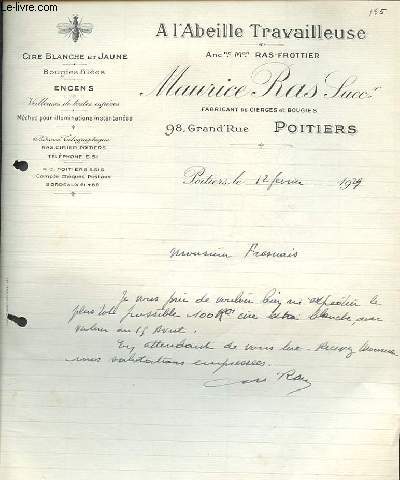 © www.le-livre.com
195
A l'Abeille Travailleuse
Anc.ne M.son RAS-FROTTIER
Maurice Ras Succ.r
FABRICANT DE CIERGES ET BOUGIES
98, Grand'Rue POITIERS
CIRE BLANCHE ET JAUNE
Bougies filées
ENCENS
Veilleuses de toutes espèces
Mèches pour illuminations instantanées
Adresse Télégraphique
RAS, CIRIER, POITIERS
TÉLÉPHONE 6.51
R.C. POITIERS
Compte Chèques Postaux
BORDEAUX
Poitiers, le 12 février 1929
Monsieur Fresnais
Je vous prie de vouloir bien me expédier le
plus tôt possible 100 K cire blanche, avec
valeur au 15 Avril.
En attendant de vous lire. Recevez Monsieur
mes salutations empressées.
Ras